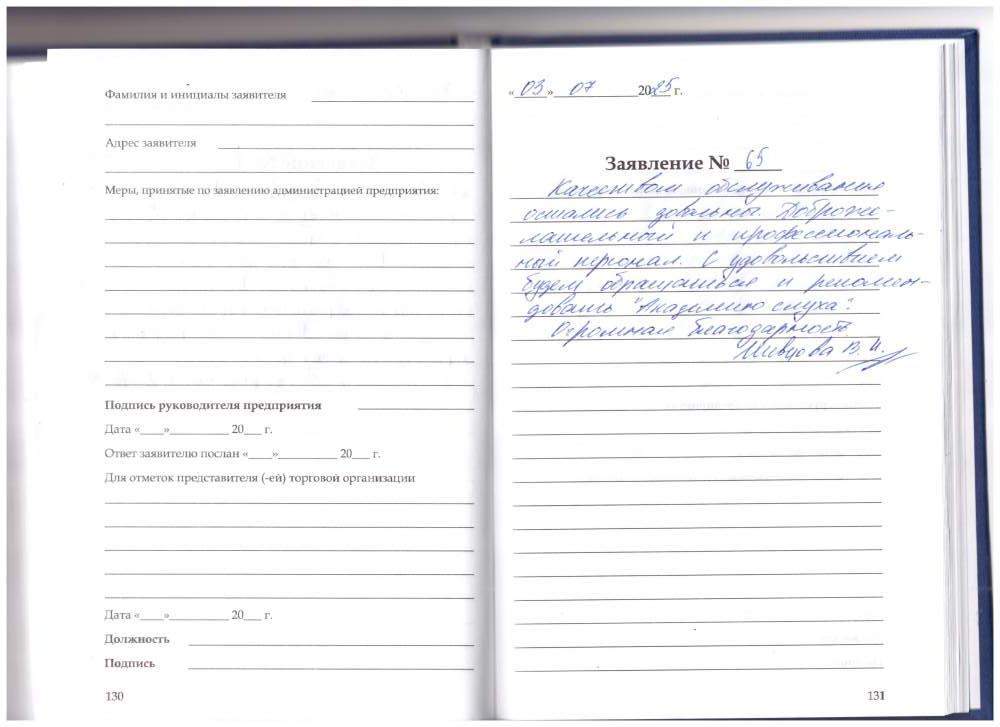 Фамилия и инициалы заявителя
Адрес заявителя
Меры, принятые по заявлению администрацией предприятия:
Подпись руководителя предприятия
Дата «____»__________ 20___ г.
Ответ заявителю послан «____»__________ 20___ г.
Для отметок представителя (-ей) торговой организации
Дата «____»__________ 20___ г.
Должность
Подпись
130
«03» 07 2025 г.
Заявление № 65
Качеством обслуживания
остались довольны. Доброже-
лательный и профессиональ-
ный персонал. С удовольствием
будем обращаться и рекомен-
довать "Академию слуха".
Огромная благодарность
В. И.
131